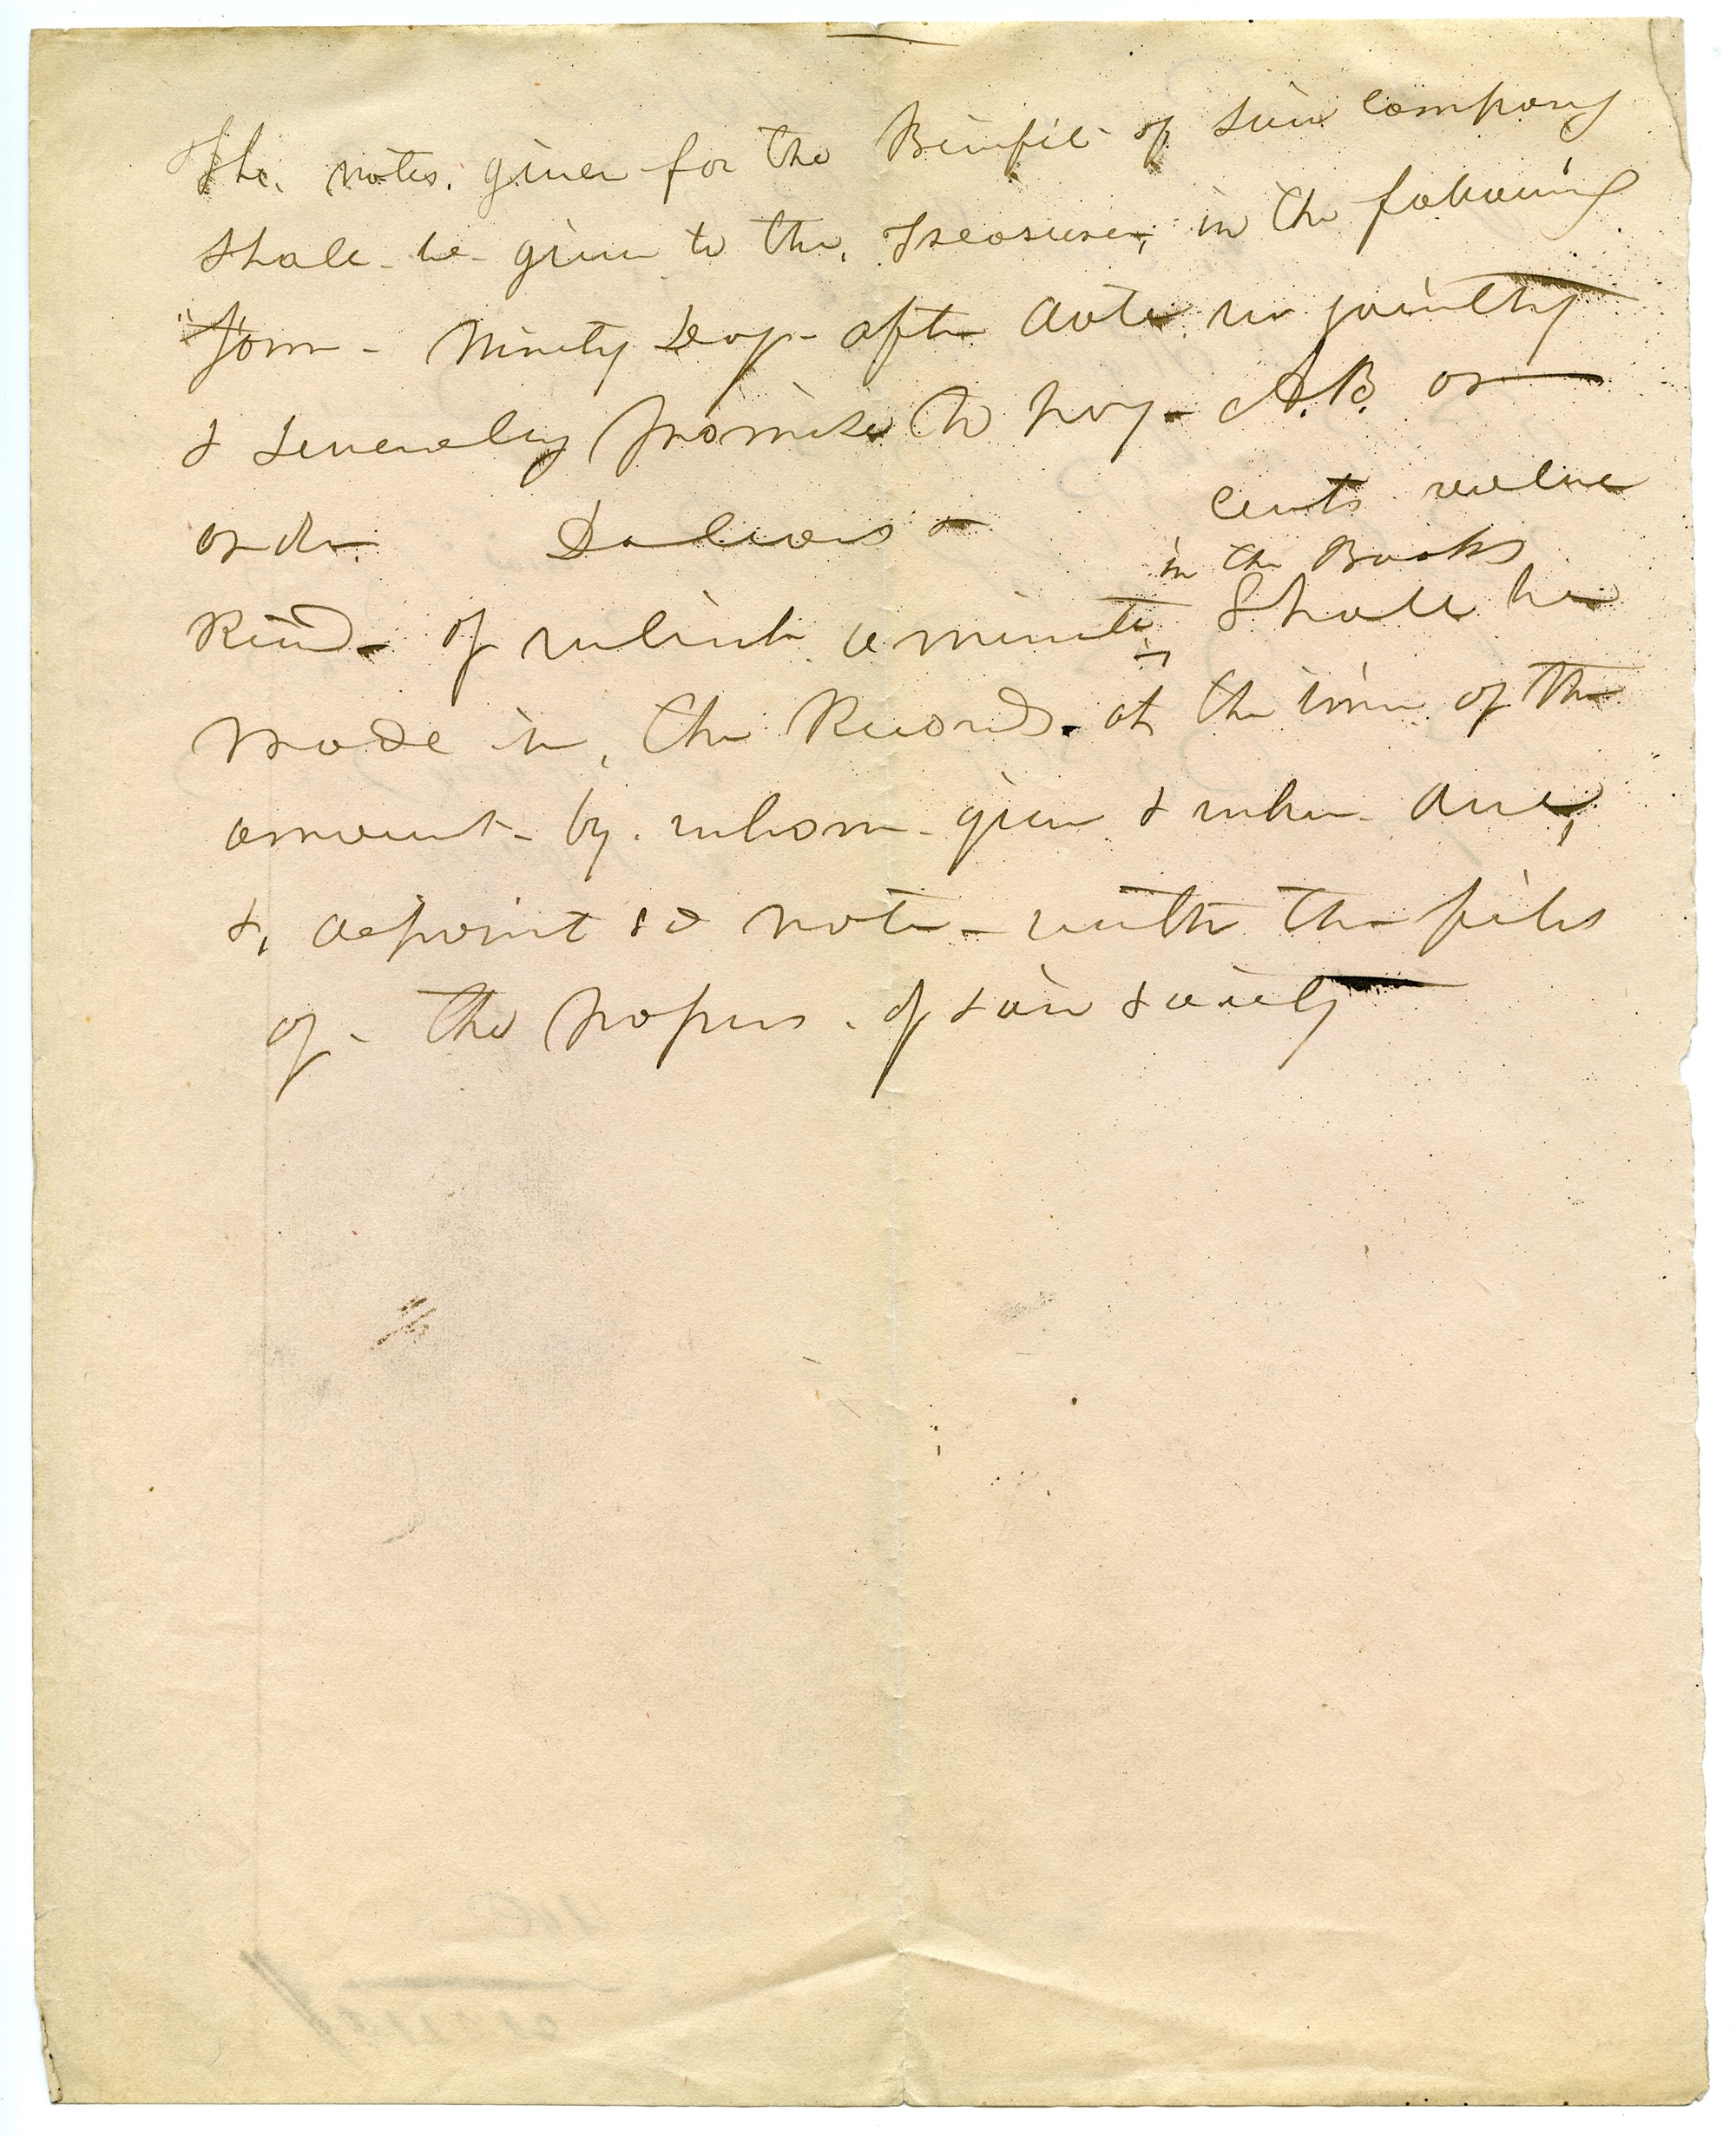 The notes given for the Benifit of said Company
shall be given to the Treasurer, in the following
"form - Ninety Days after date we jointly
& severaly promise to pay A.B. or
order Dollars & cents value
in the Books
Recd - of which a minute, Shall be
made in the Records at the time of the
amount by whom given & when due,
&, deposit sd note with the files
of the papers of said society